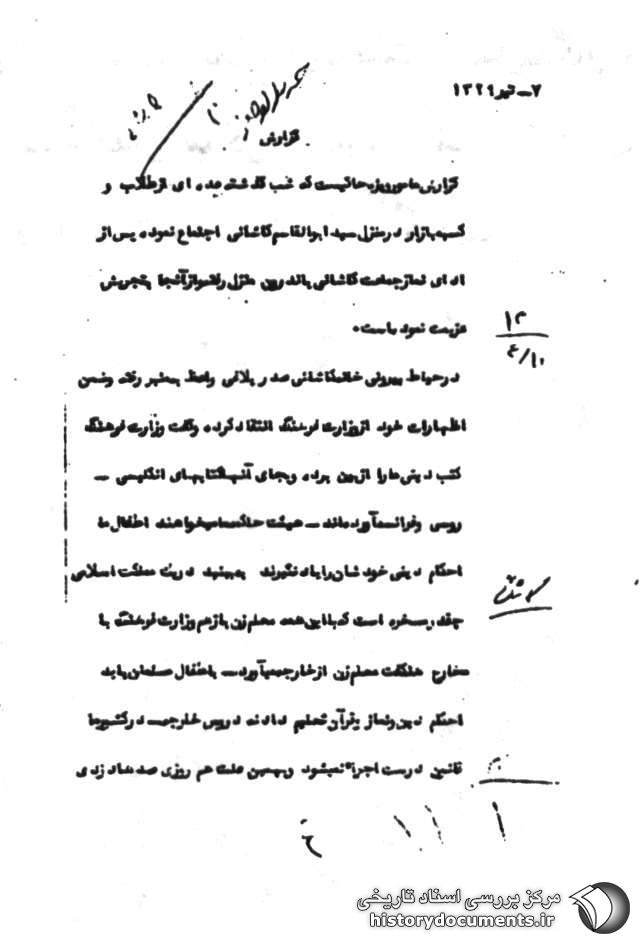 ۷ـ تیر ۱۳۲۹
گزارش
گزارش مامور ویژه حاکیست که شب گذشته عده ای از طلاب و
کسبه بازار در منزل سید ابوالقاسم کاشانی اجتماع نموده پس از
ادای نماز جماعت کاشانی باندرون منزل رفته و از آنجا بتجریش
عزیمت نموده است.
در حیاط بیرونی خانه کاشانی صدر بلاغی واعظ بمنبر رفته و ضمن
اظهارات خود از وزارت فرهنگ انتقاد کرده و گفت وزارت فرهنگ
کتب دینی ما را از بین برده و بجای آنها کتابهای انگلیسی ـ
روسی و فرانسه آورده‌اند ـ هیئت حاکمه میخواهند اطفال ما
احکام دینی خودشان را یاد نگیرند به‌بینید در یک مملکت اسلامی
چقدر مسخره است که با این همه معلم زن باز هم وزارت فرهنگ با
مخارج هنگفت معلم زن از خارج می‌آورد ـ باطفال مسلمان باید
احکام دین و نماز و قرآن تعلیم داد نه دروس خارجی ـ در کشور ما
قانون درست اجراء نمیشود و بهمین علت هم روزی صدها دزدی
۱۳
۴/۱۰
مرکز بررسی اسناد تاریخی
historydocuments.ir